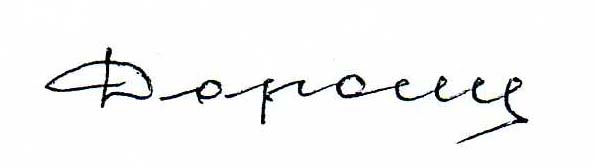 Дорош